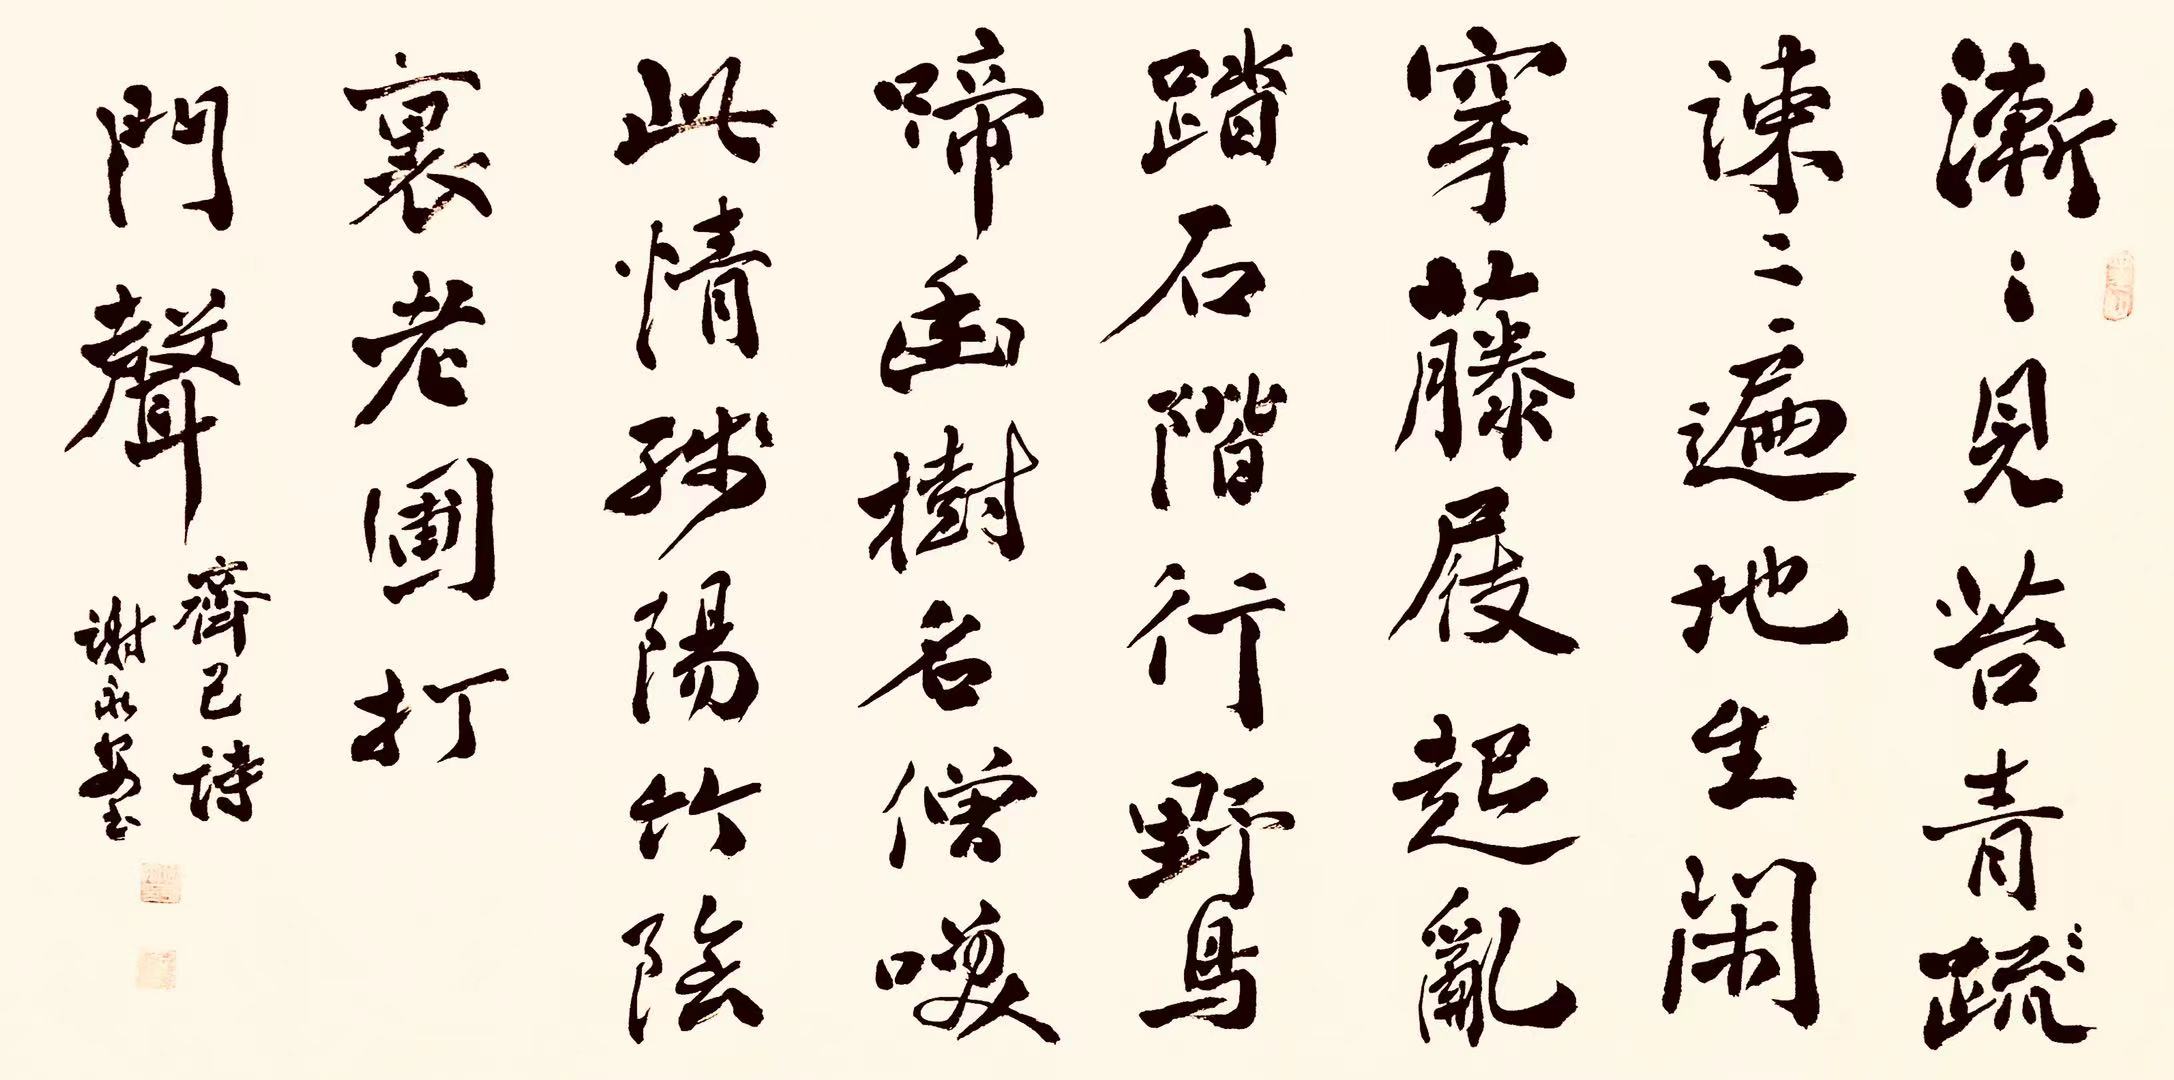 漸〻見苔青疏
疎〻遍地生閑
穿藤屐起亂
踏石階行野鳥
啼幽樹名僧喚
此情殘陽竹陰
裏老圃打
門聲
齊己詩
謝永